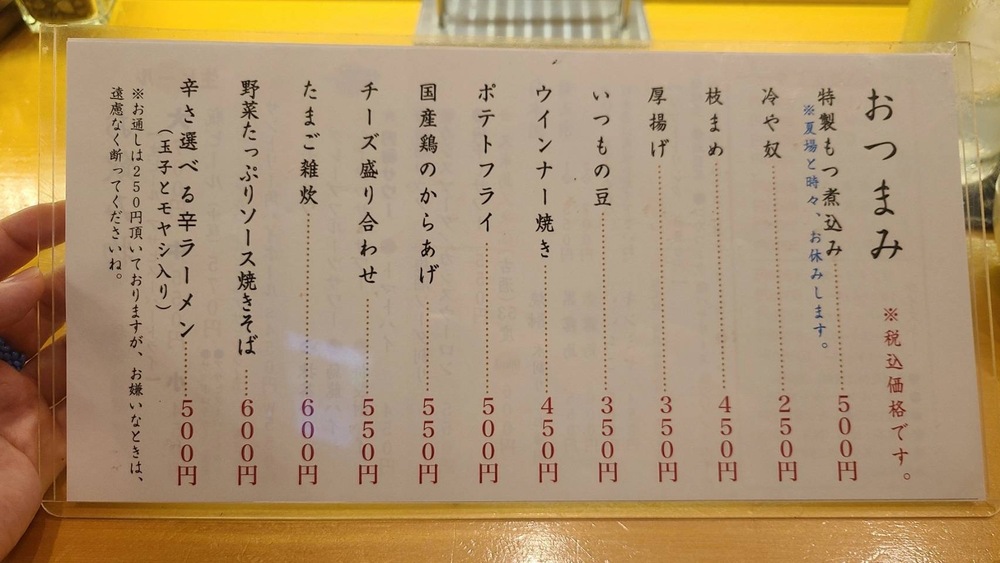 おつまみ
※税込価格です。
特製もつ煮込み………500円
※夏場と時々、お休みします。
冷や奴………250円
枝まめ………450円
厚揚げ………350円
いつもの豆………350円
ウインナー焼き………450円
ポテトフライ………500円
国産鶏のからあげ………550円
チーズ盛り合わせ………550円
たまご雑炊………600円
野菜たっぷりソース焼きそば………600円
辛さ選べる辛ラーメン………500円
(玉子とモヤシ入り)
※お通しは250円頂いておりますが、お嫌いなときは、
遠慮なく断ってくださいね。